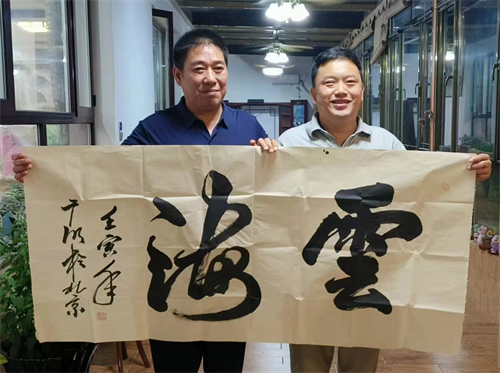 雲海
壬寅年
於北京